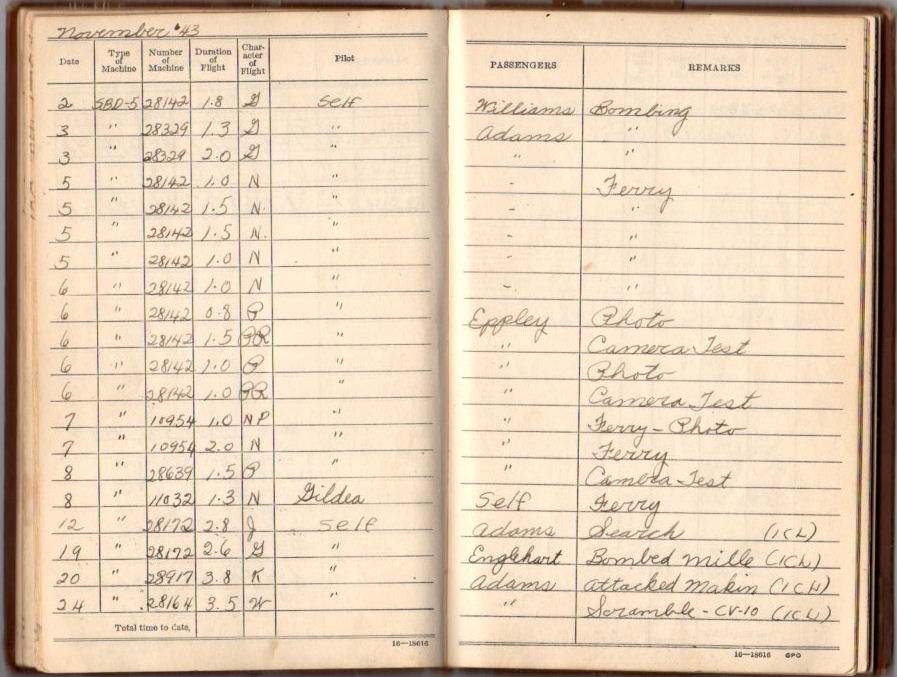 November '43
Date Type of Machine Number of Machine Duration of Flight Character of Flight Pilot PASSENGERS REMARKS
2 SBD-5 28142 1.8 G Self Williams Bombing
3 " 28329 1.3 G " Adams "
3 " 28329 2.0 G " " "
5 " 28142 1.0 N " - Ferry
5 " 28142 1.5 N " - "
5 " 28142 1.5 N. " - "
5 " 28142 1.0 N " - "
6 " 28142 1.0 N " - "
6 " 28142 0.8 P " Eppley Photo
6 " 28142 1.5 " " Camera Test
6 " 28142 1.0 P " " Photo
6 " 28142 1.0 " " Camera Test
7 " 10954 1.0 NP " " Ferry - Photo
7 " 10954 2.0 N " " Ferry
8 " 28639 1.5 P " " Camera Test
8 " 11032 1.3 N Gildea Self Ferry
12 " 28172 2.8 J Self Adams Search (1CL)
19 " 28172 2.6 G " Englehart Bombed mille (1CL)
20 " 28917 3.8 K " Adams attacked Makin (1CL)
24 " 28164 3.5 W " " Scramble - CV-10 (1CL)
Total time to date,
16—18616
16—18616 GPO